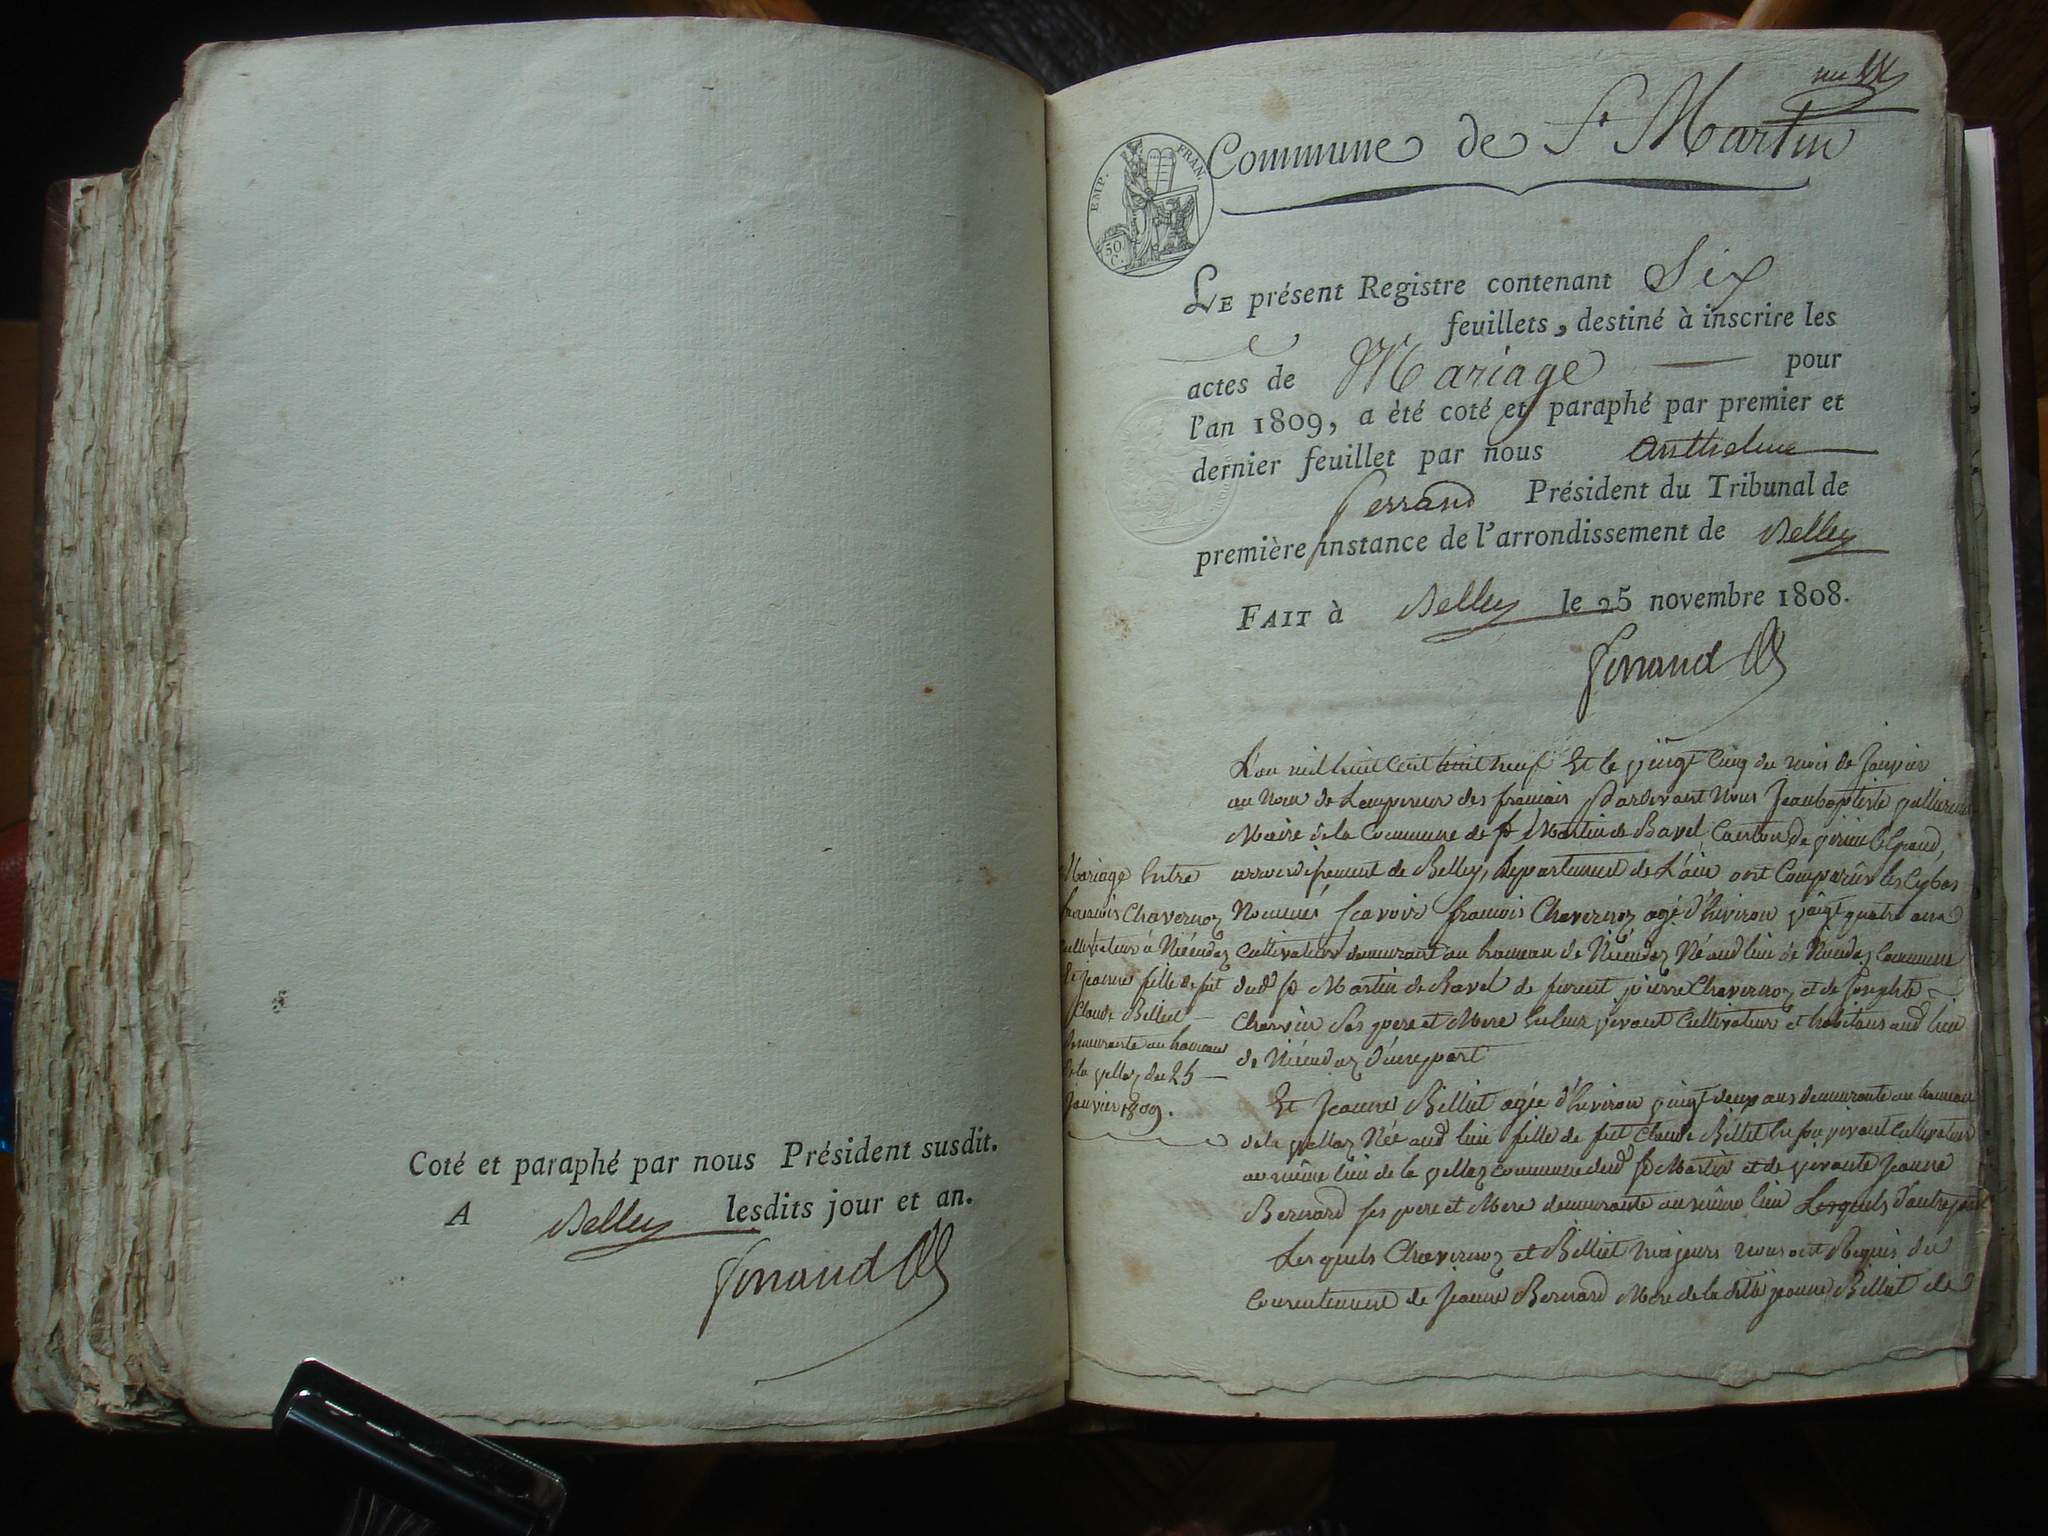 Coté et paraphé par nous Président susdit.
A Belley lesdits jour et an.
Ferrand
Commune de St Martin
EMP. FRAN.
50 C.
LE présent Registre contenant Six
feuillets, destiné à inscrire les
actes de Mariage pour
l'an 1809, a èté coté et paraphé par premier et
dernier feuillet par nous Anthelme
Ferrand Président du Tribunal de
première instance de l'arrondissement de Belley
FAIT à Belley le 25 novembre 1808.
Ferrand
L'an mil huit cent huit neuf Et le vingt cinq du mois de Janvier
au Nom de Lempereur des francais Pardevant Nous Jeanbaptiste
Maire de la Commune de St Martin de Bavel Canton de virieu le Grand,
arrondissement de Belley, Departement de L'ain ont Comparûs les Cy bas
Nommés scavoir francois Chavernoz agé d'Environ vaingt quatre ans
Cultivateur demeurant au hameau de Né aud lieu de Commune
dudt St Martin de Bavel de furent pierre Chavernoz et de Josephte
Charvin Ses pere et Mere En leur vivant Cultivateur et habitans aud lieu
de d'une part
Mariage Entre
francois Chavernoz
Cultivateur à
Et Jeanne fille de feu
Claude Billiet
demeurante au hameau
de la vellaz du 25
Janvier 1809.
Et Jeanne Billiet agée d'Environ vuingt deux ans demeurante au hameau
de la vellaz Née aud lieu fille de feu Claude Billiet En son vivant Cultivateur
au même lieu de la vellaz commune dudt St Martin et de vivante Jeanne
Bernard ses pere et Mere demeurante au même lieu Lesquels d'autre part
Lesquels Chavernoz et Billiet Majeurs nous ont Requis du
Consentement de Jeanne Bernard Mere de la ditte jeanne Billiet de